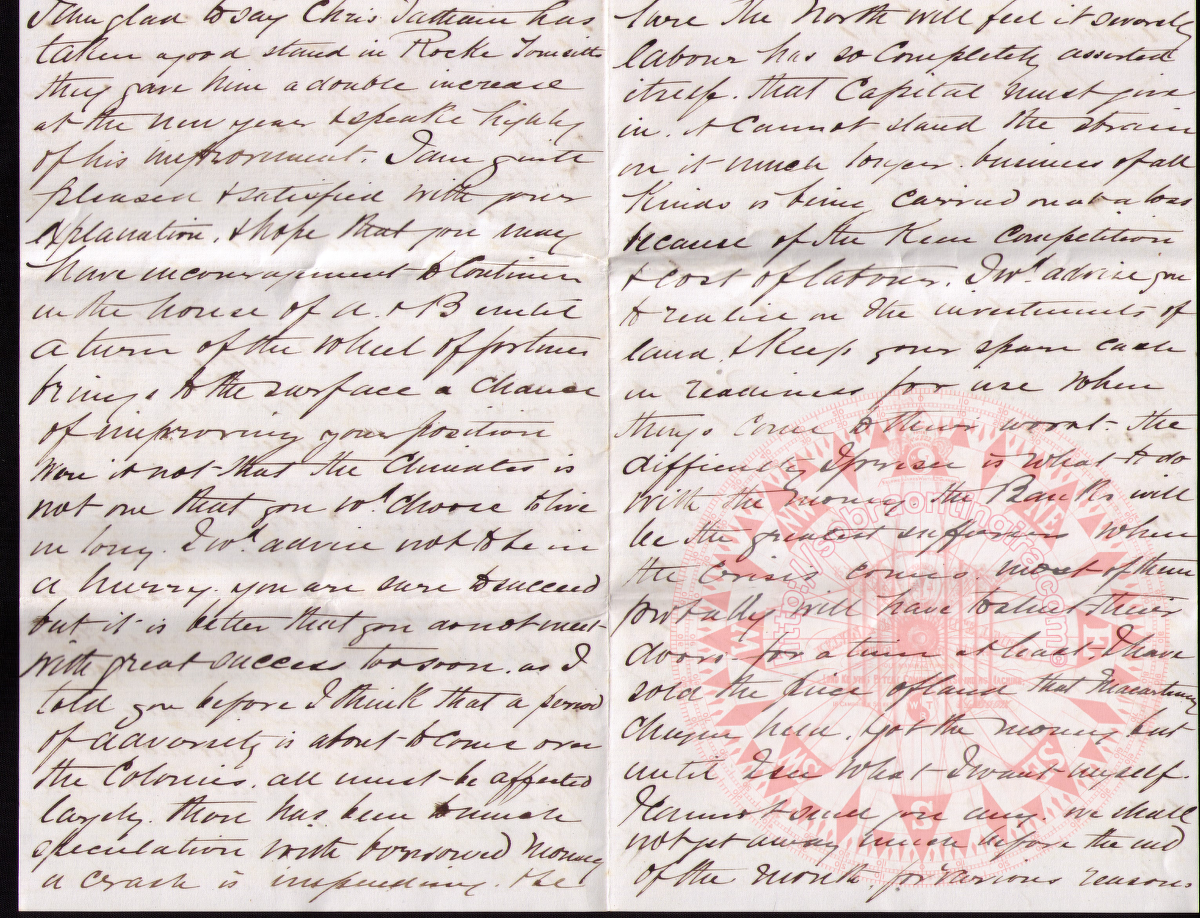 I am glad to say Chris Tatham has
taken a good stand in Rocke
they gave him a double increase
at the new year & speake highly
of his improvement. I am quite
pleased & satisfied with your
explanation, & hope that you may
have incouragement to continue
in the house of A. & B until
a turn of the wheel of fortune
brings to the surface a chance
of improving your position
were it not that the Climate is
not one that you wd. choose to live
in long. I wd. advise not to be in
a hurry. you are sure to succeed
but it is better that you do not meet
with great success too soon. as I
told you before I think that a period
of adversity is about to come over
the Colonies. all must be affected
largely. there has been to much
speculation with borrowed money
a crash is impending. the
sure the North will feel it severely
labour has so completely asserted
itself. that Capital must give
in. & cannot stand the strain
on it much longer. business of all
kinds is being carried on at a loss
because of the keen competition
& cost of labour. I wd. advise you
to realise on the investments of
land. & keep your spare cash
in readiness for use when
things come to their worst - the
difficulty I foresee is what to do
with the money the Banks will
be the greatest sufferers when
the crisis comes. most of them
probably will have to shut their
doors - for a time at least - I have
sold the piece of land that Macartney
here. & got the money but
until I see what I want myself.
I cannot send you any. we shall
not get away much before the end
of the month. for various reasons
http://sabraontungira.com
N
NE
E
SE
S
SW
W
NW